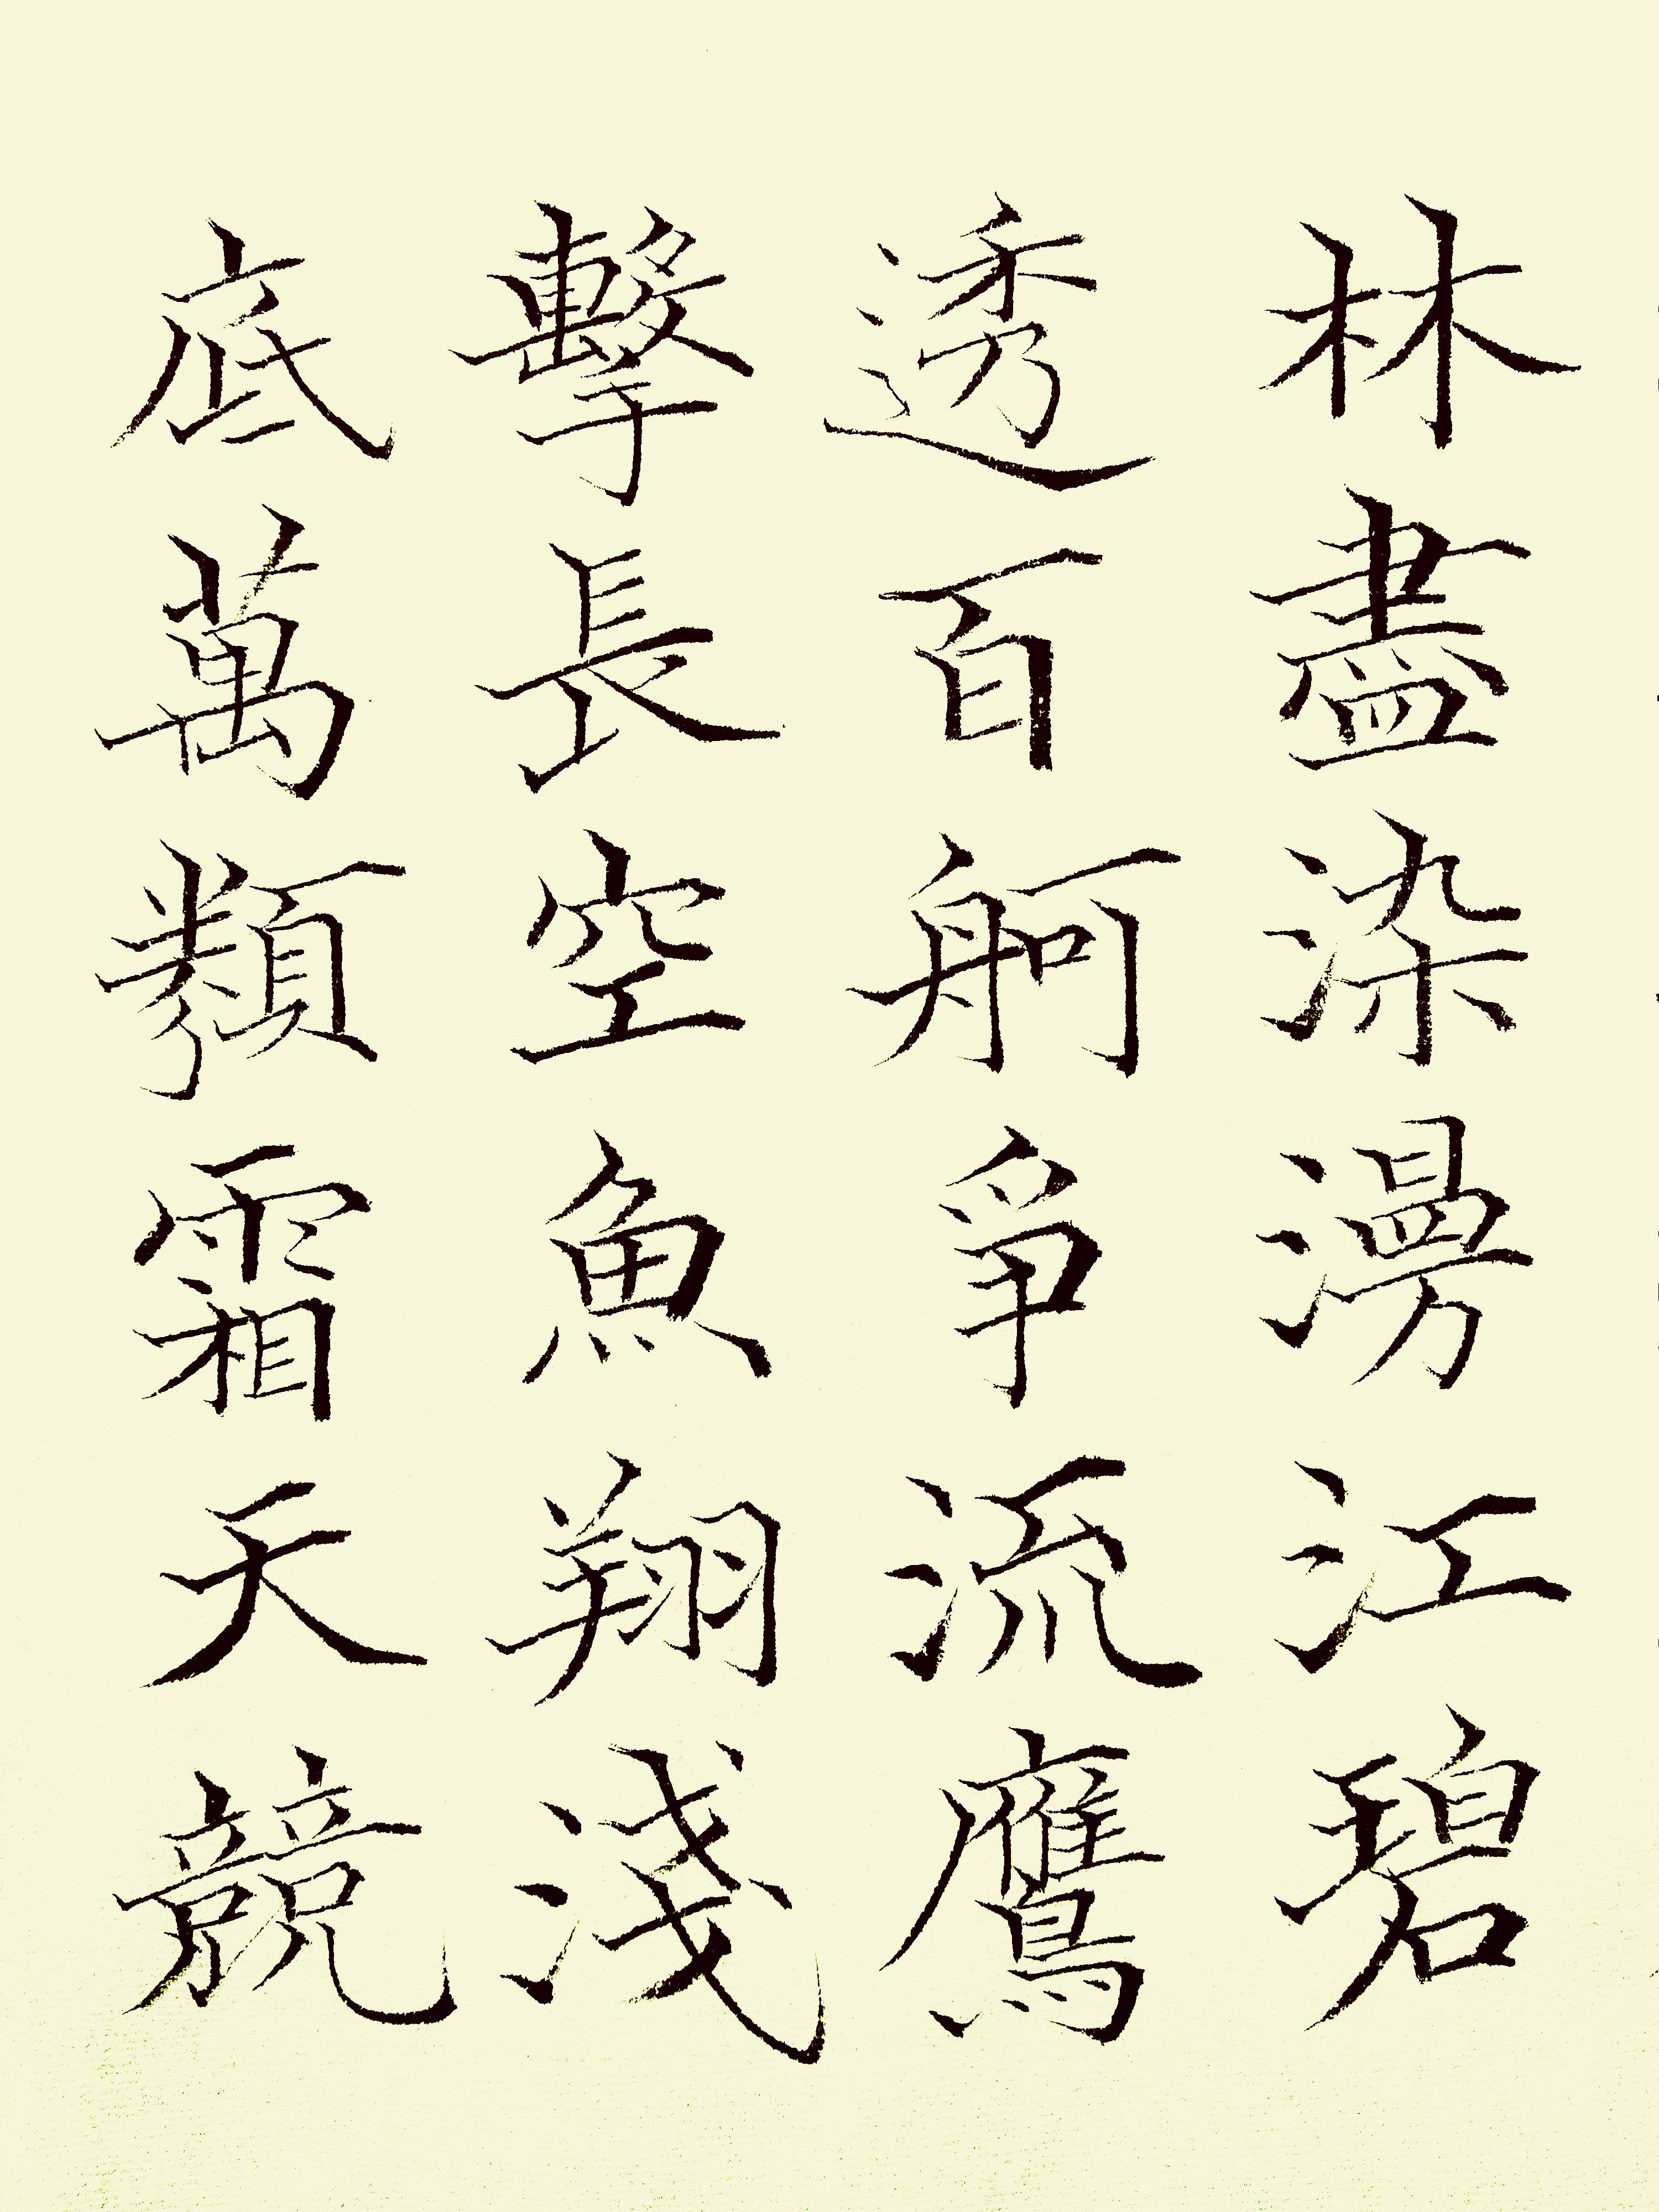 林盡染漫江碧
透百舸爭流鷹
擊長空魚翔淺
底萬類霜天競